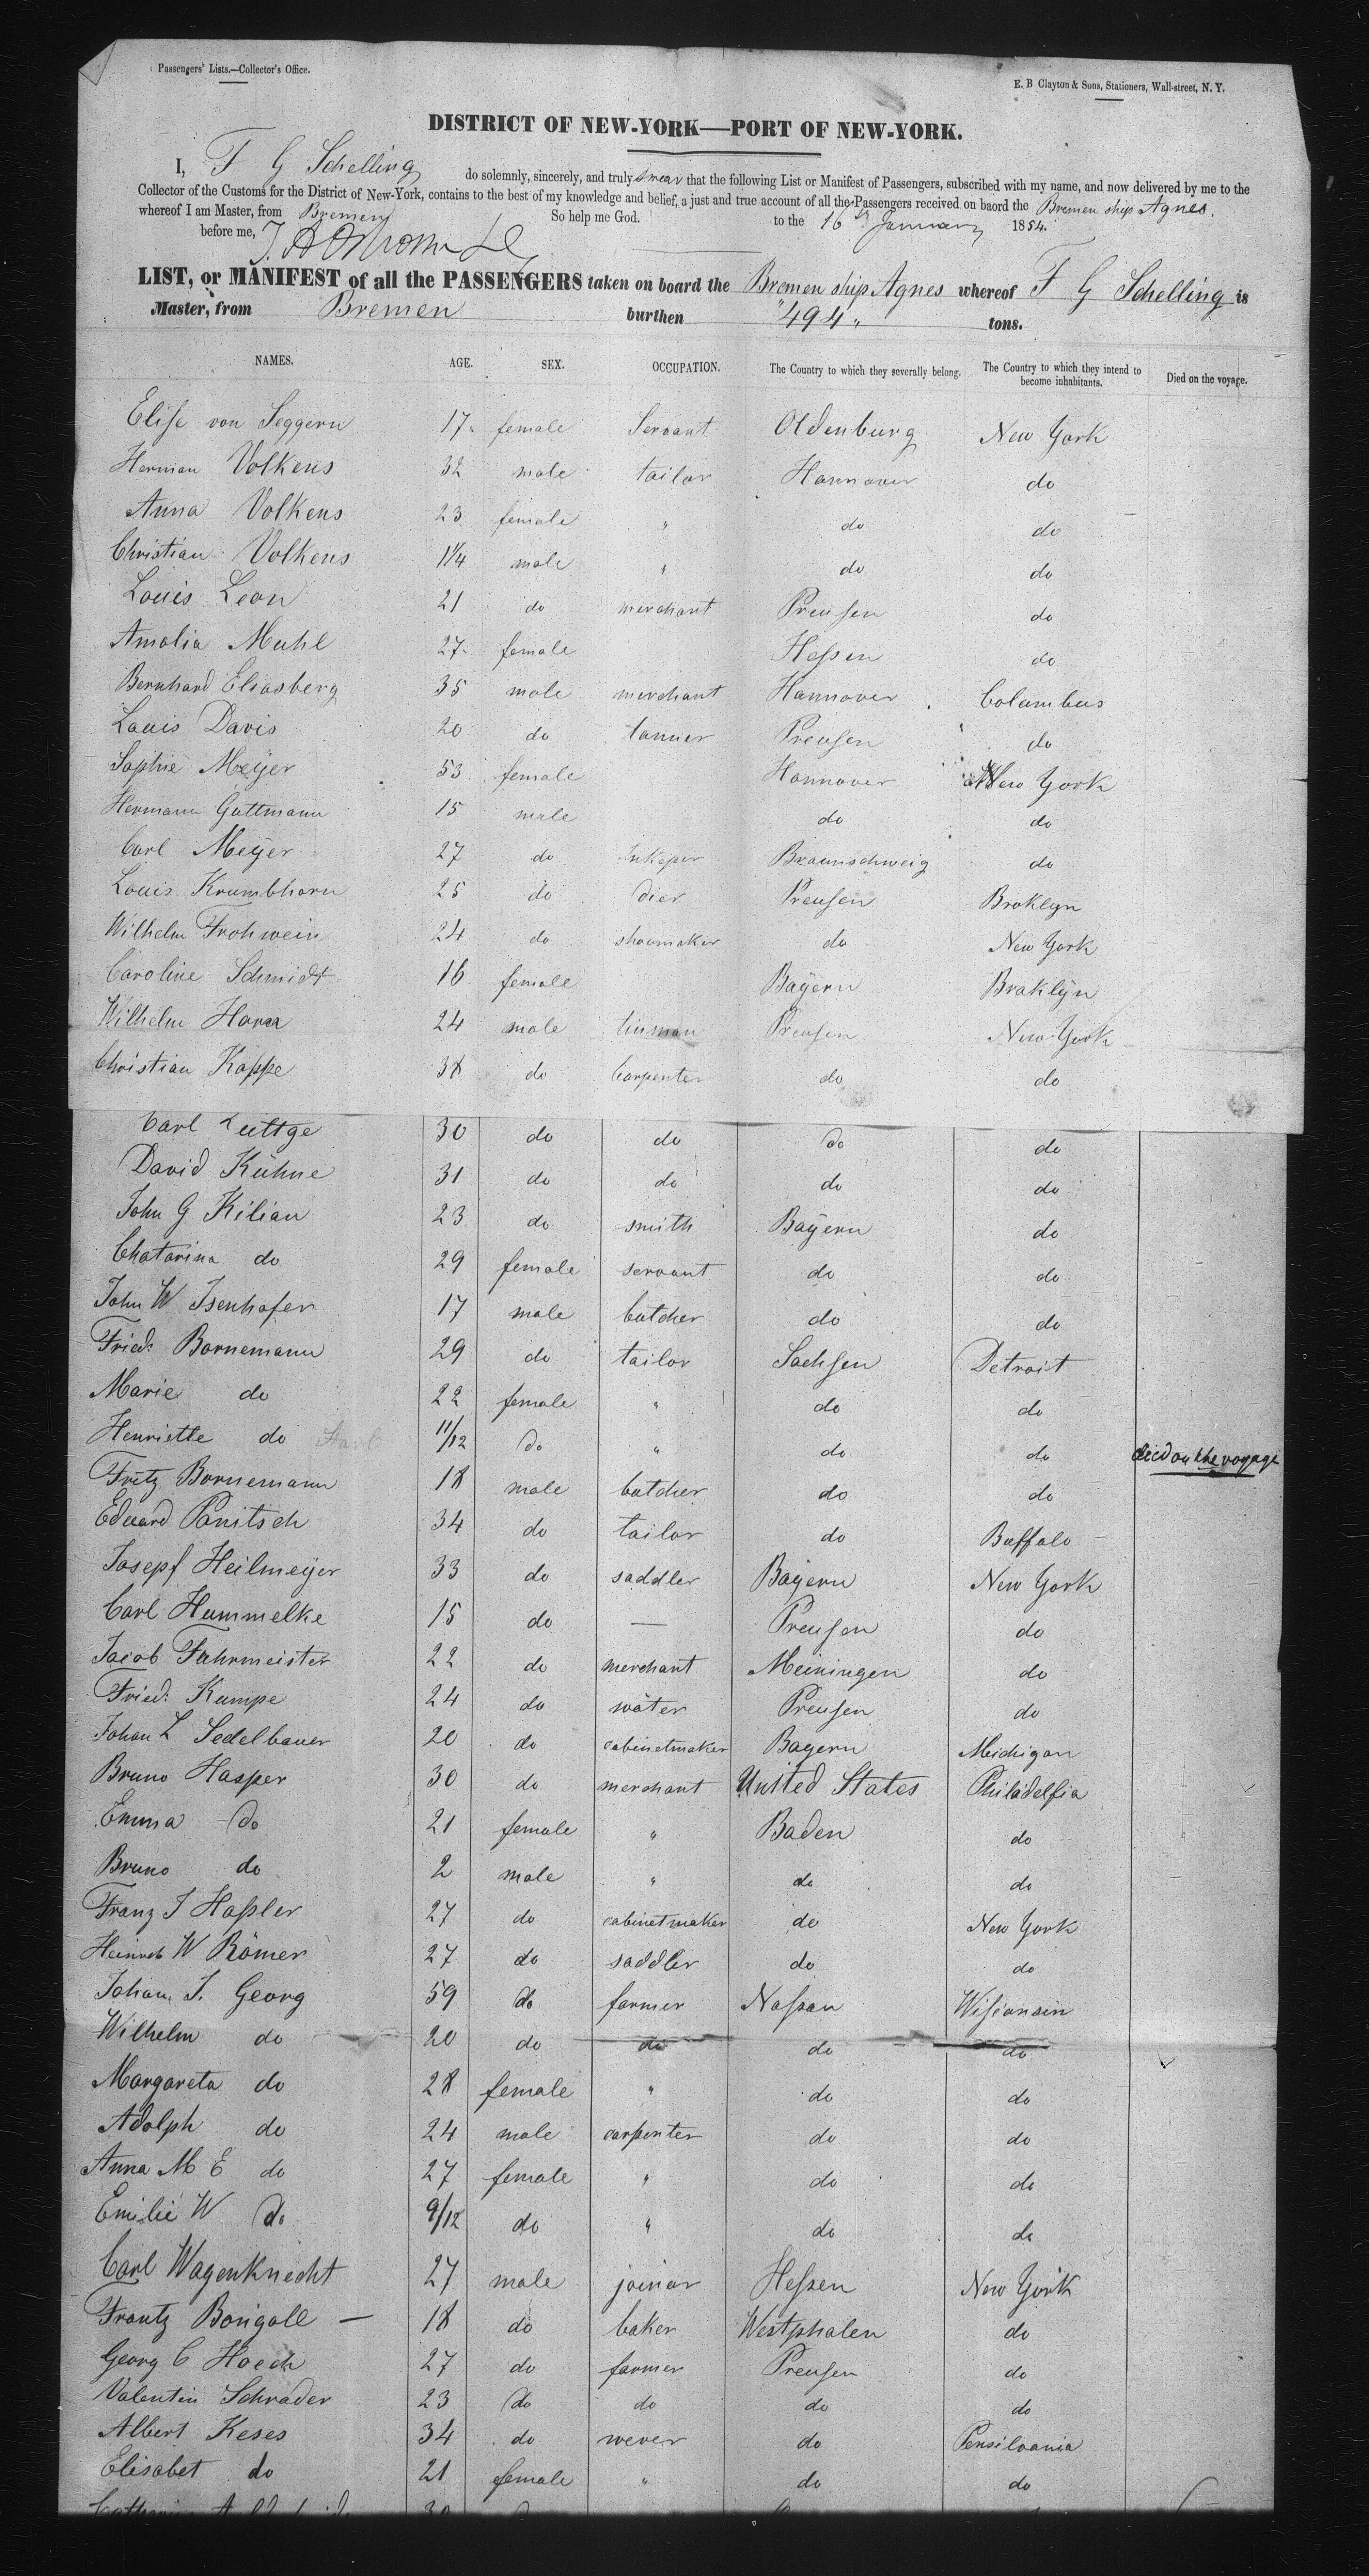 Passengers' Lists.—Collector's Office.
E. B Clayton & Sons, Stationers, Wall-street, N. Y.
DISTRICT OF NEW-YORK—PORT OF NEW-YORK.
I, F G Schelling do solemnly, sincerely, and truly swear that the following List or Manifest of Passengers, subscribed with my name, and now delivered by me to the
Collector of the Customs for the District of New-York, contains to the best of my knowledge and belief, a just and true account of all the Passengers received on baord the Bremen ship Agnes.
whereof I am Master, from Bremen So help me God. to the 16th January 1854.
before me,
LIST, or MANIFEST of all the PASSENGERS taken on board the Bremen ship Agnes whereof F G Schelling is
Master, from Bremen burthen "494" tons.
NAMES. AGE. SEX. OCCUPATION. The Country to which they severally belong. The Country to which they intend to become inhabitants. Died on the voyage.
Elise von Seggern 17 female Servant Oldenburg New York
Herman Volkens 32 male tailor Hannover do
Anna Volkens 23 female " do do
Christian Volkens 1 1/4 male " do do
Louis Leon 21 do merchant Preusen do
Amalia Muhl 27 female Hessen do
Bernhard Eliasberg 35 male merchant Hannover Columbus
Louis Davis 20 do tanner Preusen do
Sophie Meÿer 53 female Hannover New York
Hermann Guttmann 15 male do do
Carl Meÿer 27 do Inkeper Braunschweig do
Louis Krumbhorn 25 do dier Preusen Broklyn
Wilhelm Frohwein 24 do shoumaker do New York
Caroline Schmidt 16 female Baÿern Braklÿn
Wilhelm 24 male tinman Preusen New York
Christian Kappe 38 do Carpenter do do
Carl Luttge 30 do do do do
David Kühne 31 do do do do
John G Kilian 23 do smith Baÿern do
Chatarina do 29 female servant do do
John W Isenhofer 17 male butcher do do
Fried: Bornemann 29 do tailor Sachsen Detroit
Marie do 22 female " do do
Henriette do 11/12 do " do do died on the voyage
Fritz Bornemann 18 male butcher do do
Eduard Panitsch 34 do tailor do Buffalo
Josepf Heilmeÿer 33 do saddler Baÿern New York
Carl Hummelke 15 do — Preusen do
Jacob Fahrmeister 22 do merchant Meiningen do
Fried: Kumpe 24 do wäter Preusen do
Johan L Sedelbauer 20 do cabinetmaker Bayern Michigan
Bruno Hasper 30 do merchant United States Philadelfia
Emma do 21 female " Baden do
Bruno do 2 male " do do
Franz J Hassler 27 do cabinetmaker do New York
Heinrch W Römer 27 do saddler do do
Johan J. Georg 59 do farmer Nassau Wisconsin
Wilhelm do 20 do do do do
Margareta do 28 female " do do
Adolph do 24 male carpenter do do
Anna M E do 27 female " do do
Emilie W do 9/12 do " do do
Carl Wagenknecht 27 male joiner Hessen New York
Frantz Bongall — 18 do baker Westphalen do
Georg C Hoech 27 do farmer Preusen do
Valentin Schrader 23 do do do do
Albert Keses 34 do wever do Pensilvania
Elisabet do 21 female " do do